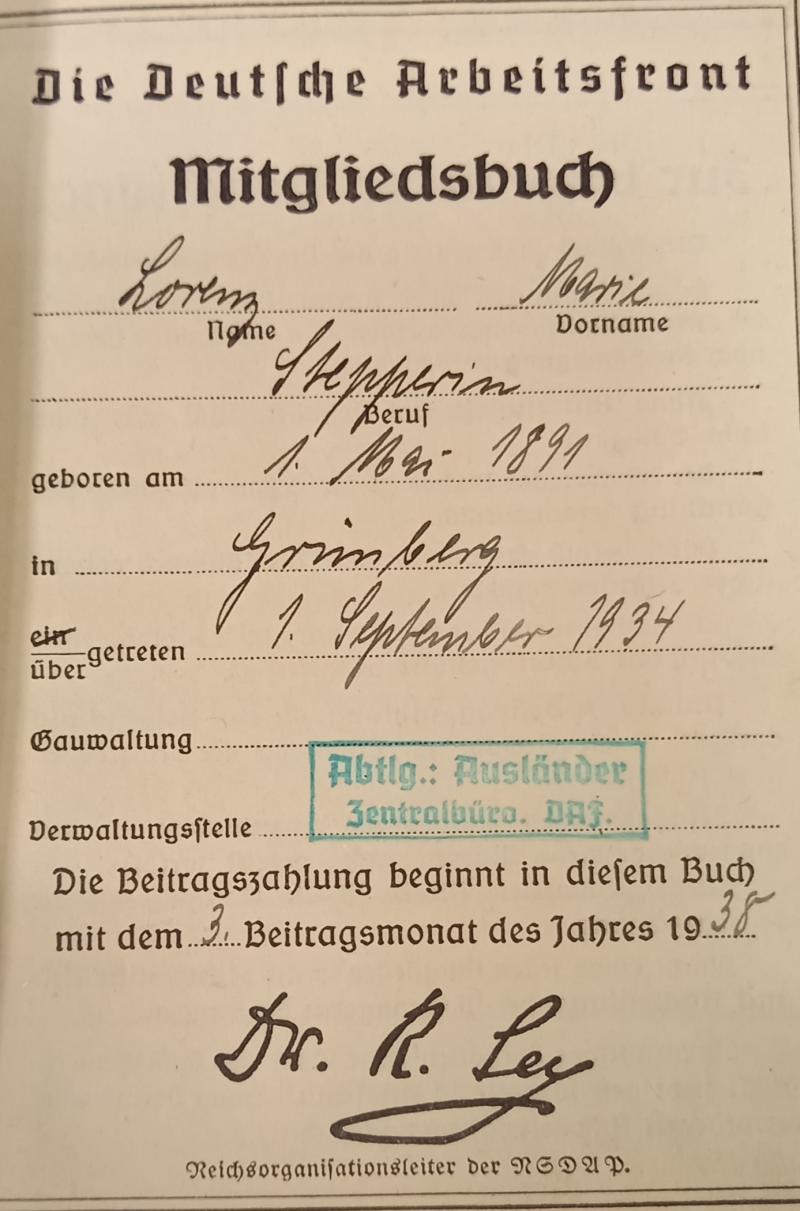 Die Deutſche Arbeitsfront
Mitgliedsbuch
Lorenz Marie
Name Vorname
Stepperin
Beruf
geboren am 1. Mai 1891
in Grünberg
ein
über getreten 1. September 1934
Gauwaltung
Abtlg.: Ausländer
Zentralbüro. DAF.
Verwaltungsſtelle
Die Beitragszahlung beginnt in dieſem Buch
mit dem 3. Beitragsmonat des Jahres 1938
Dr. R. Ley
Reichsorganiſationsleiter der NSDAP.